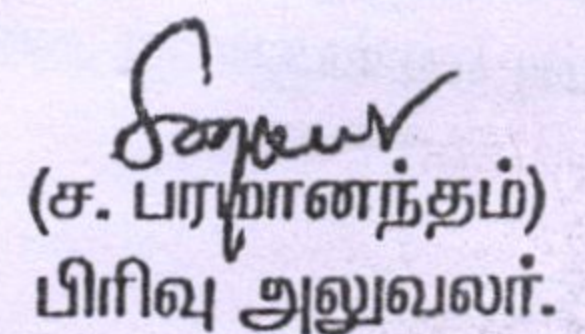 (ச. பரமானந்தம்)
பிரிவு அலுவலர்.